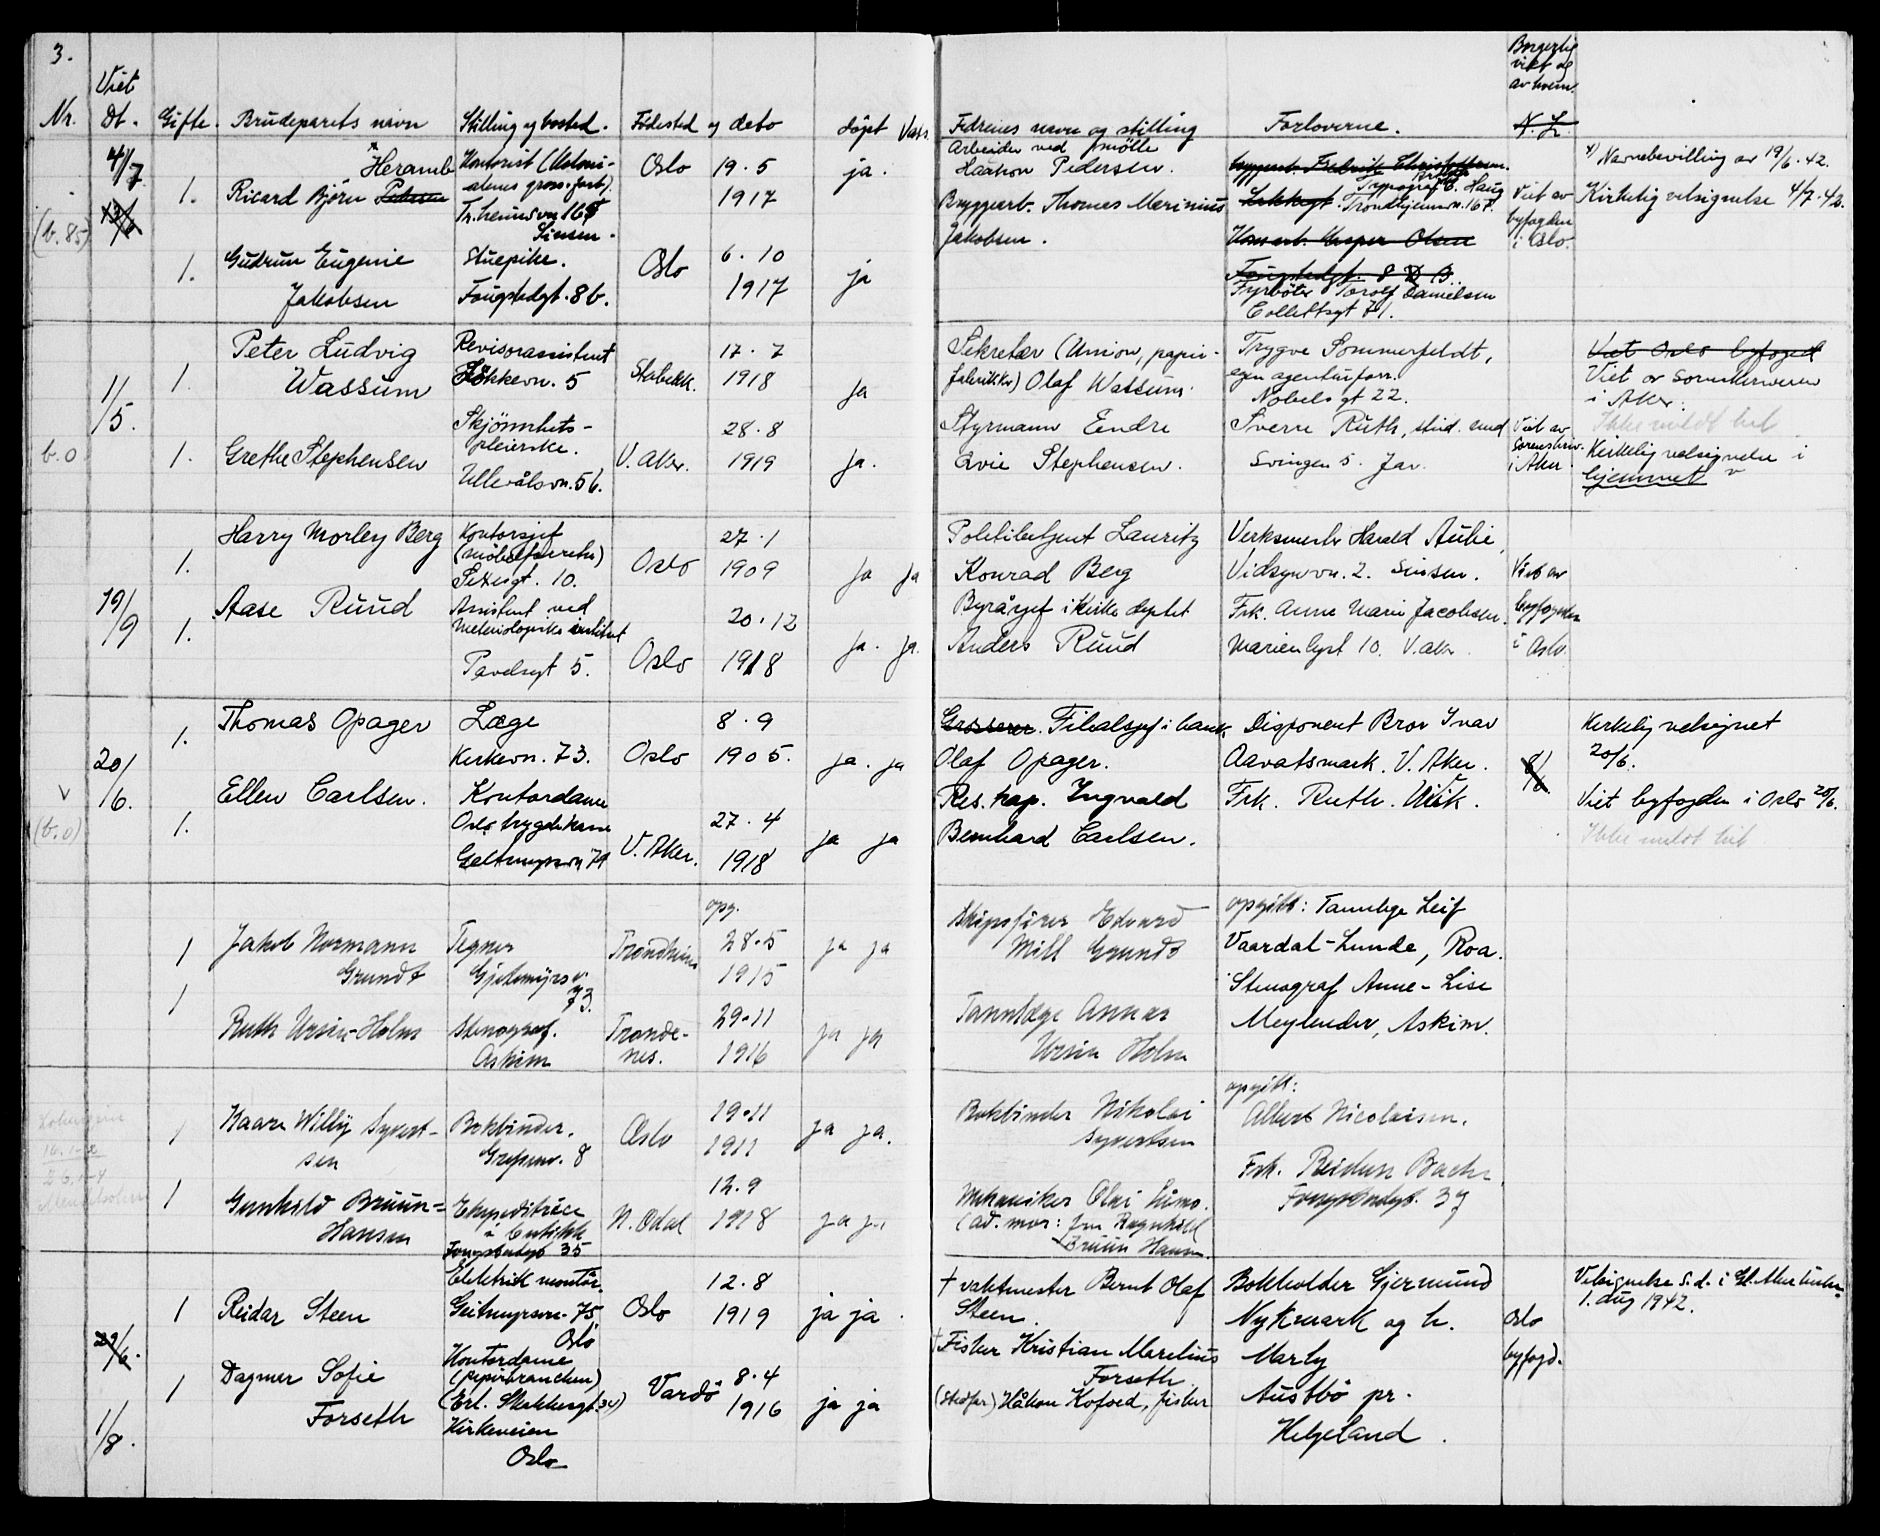 3.
Nr. Viet Dt. Gifte. Brudeparets navn Stilling og bosted. Fødested og dato døpt Vaks. Fedrenes navn og stilling Forloverne. Borgerlig viet og av hvem. N. L.
4/7 13/6 (b. 85)
1. Ricard Björn Pedersen x Heramb
Kontorist (Kolonialenes gross. forb.)
Tr.heimsvn 168
Sinsen.
Oslo 19.5 1917 ja.
Arbeider ved mølle
Haakon Pedersen.
Typograf Haug
Trondhjemsvn. 167.
Viet av byfogden i Oslo.
x) Navnebevilling av 19/6.42.
Kirkelig velsignelse 4/7.42.
1. Gudrun Eugenie Jakobsen
Stuepike.
Fougstadgt. 8 b.
Oslo 6.10 1917 ja
Bryggearb. Thomas Marinius Jakobsen.
Kasper Olsen
Fougstadgt. 8 B.
Fyrbøter Torolf Danielsen
Collettsgt 71.
1/5. b.0
1. Peter Ludvig Wassum
Revisorassistent
Løkkevn. 5
Stabekk. 17.7 1918 ja
Sekretær (Union, papirfabrikker) Olaf Wassum.
Trygve Sommerfeldt,
egen agenturforr.
Nobelsgt 22.
Viet Oslo byfoged
Viet av sorenskriveren
i Aker.
Ikke meldt hit
1. Grethe Stephensen
Skjønnhetspleierske.
Ullevålsvn. 56.
V. Aker. 28.8 1919 ja.
Styrmann Eindre
Qvie Stephensen.
Sverre Ruth, stud. med
Svingen 5. Jar.
Viet av sorenskriv. i Aker
Kirkelig velsignelse i
hjemmet v
19/9
1. Harry Morley Berg
Kontorsjef
Sexesgt. 10.
Oslo 27.1 1909 ja ja
Politibetjent Lauritz
Konrad Berg
Verksmester Harald Aulie,
Vidsynvn. 2. Sinsen.
Viet av byfogden i Oslo.
1. Aase Ruud
Assistent ved
Meteorologiske institut
Pavelsgt 5.
Oslo 20.12 1918 ja. ja.
Byråsjef i Kirke deptet
Anders Ruud
Frk. Anne Marie Jacobsen.
Marienlyst 10. V. aker.
20/6. v (b.0)
1. Thomas Opager
Læge
Kirkevn. 73.
Oslo 8.9 1905. ja. ja
Grosserer. Filialsjef i bank
Olaf Opager.
Disponent Bror Ivar
Aavatsmark. V. Aker.
Kirkelig velsignet
20/6.
1. Ellen Carlsen.
Kontordame
Oslo trygdekasse
Geitmyrsvn 71
V. Aker. 27.4 1918 ja ja
Res. kap. Ingvald
Bernhard Carlsen.
Frk. Ruth. Wiik.
Viet byfogden i Oslo 20/6.
Ikke meldt hit
1 Jakob Normann Grundt
Tegner
Gjetemyrsv. 73.
Trondheim opg. 28.5 1915 ja ja
Skipsfører Edvard
Mill Grundt
opgitt: Tannlege Leif
Vaardal-Lunde, Roa.
1 Ruth Ursin-Holm
Stenograf.
Askim
Trondenes. 29.11 1916 ja ja
Tannlæge Annar
Ursin Holm
Stenograf Anne-Lise
Meylender, Askim.
1 Kaare Willy Syvertsen
Bokbinder.
Grefsenv. 8
Oslo 19.11 1911 ja ja.
Bokbinder Nikolai
Syvertsen
opgitt:
Albert Nicolaisen.
1 Gunhild Bruun-Hansen
Ekspeditrice
i butikk
Fougstadgt 35
N. Odal 12.9 1918 ja ja
Mekaniker Olai Limo.
(ad. mor: fru Ragnhild
Bruun Hansen.
Frk. Reidun Bache
Fougstadgt. 37
29/6. 1/8.
1 Reidar Steen
Elektrik montør.
Geitmyrsvn. 75,
Oslo
Oslo 12.8 1919 ja ja.
† vaktmester Bernt Olaf
Steen.
Bokholder Gjermund
Nykmark og h.
Oslo byfogd.
Velsignelse s.d. i Gl. Aker kirke
1. aug 1942.
1 Dagmar Sofie Forseth
Kontordame
(papirbranchen)
Kirkeveien
Oslo
Vardø 8.4 1916 ja ja
† Fisker Kristian Marelius
Forseth.
(stedfar) Håkon Kofoed, fisker
Marly
Austbø pr.
Helgeland.